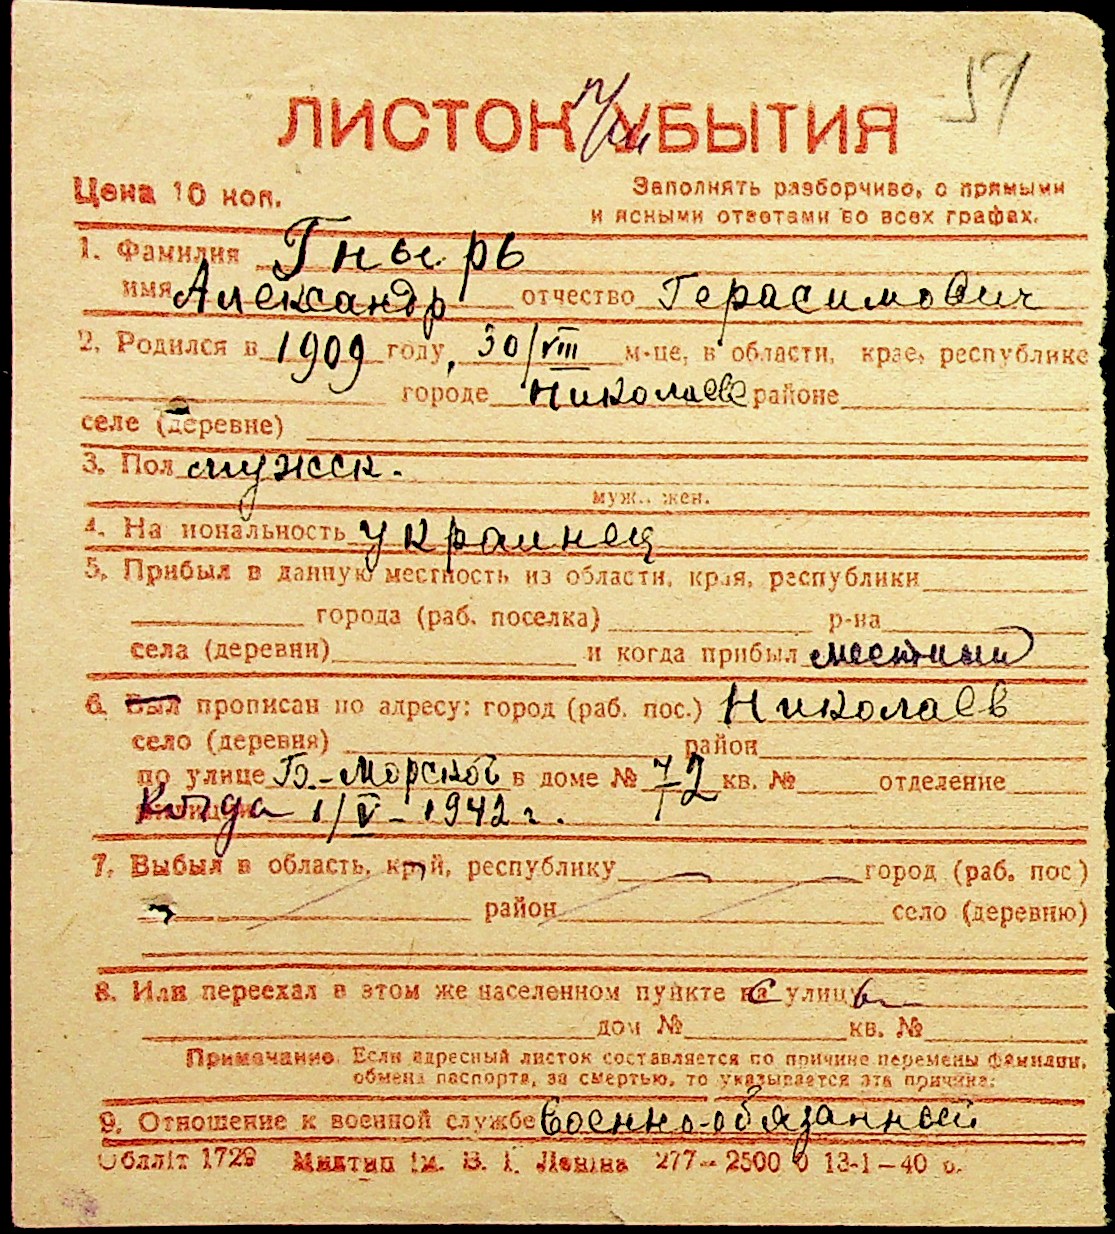 51
ЛИСТОК УБЫТИЯ
Цена 10 коп.
Заполнять разборчиво, с прямыми
и ясными ответами во всех графах.
1. Фамилия Гнырь
имя Александр отчество Герасимович
2. Родился в 1909 году, 30/VIII м-це, в области, крае, республике
городе Николаеве районе
селе (деревне)
3. Пол мужск.
муж., жен.
4. Национальность украинец
5. Прибыл в данную местность из области, края, республики
города (раб. поселка) р-на
села (деревни) и когда прибыл местный
6. Был прописан по адресу: город (раб. пос.) Николаев
село (деревня) район
по улице Б.-Морской в доме № 72 кв. № отделение
Когда 1/V-1942 г.
7. Выбыл в область, край, республику город (раб. пос.)
район село (деревню)
8. Или переехал в этом же населенном пункте с улицы
дом № кв. №
Примечание. Если адресный листок составляется по причине перемены фамилии,
обмена паспорта, за смертью, то указывается эта причина:
9. Отношение к военной службе военно-обязанный
Обллiт 1729 Миктип iм. В. I. Ленiна 277-2500 0 13-1-40 р.